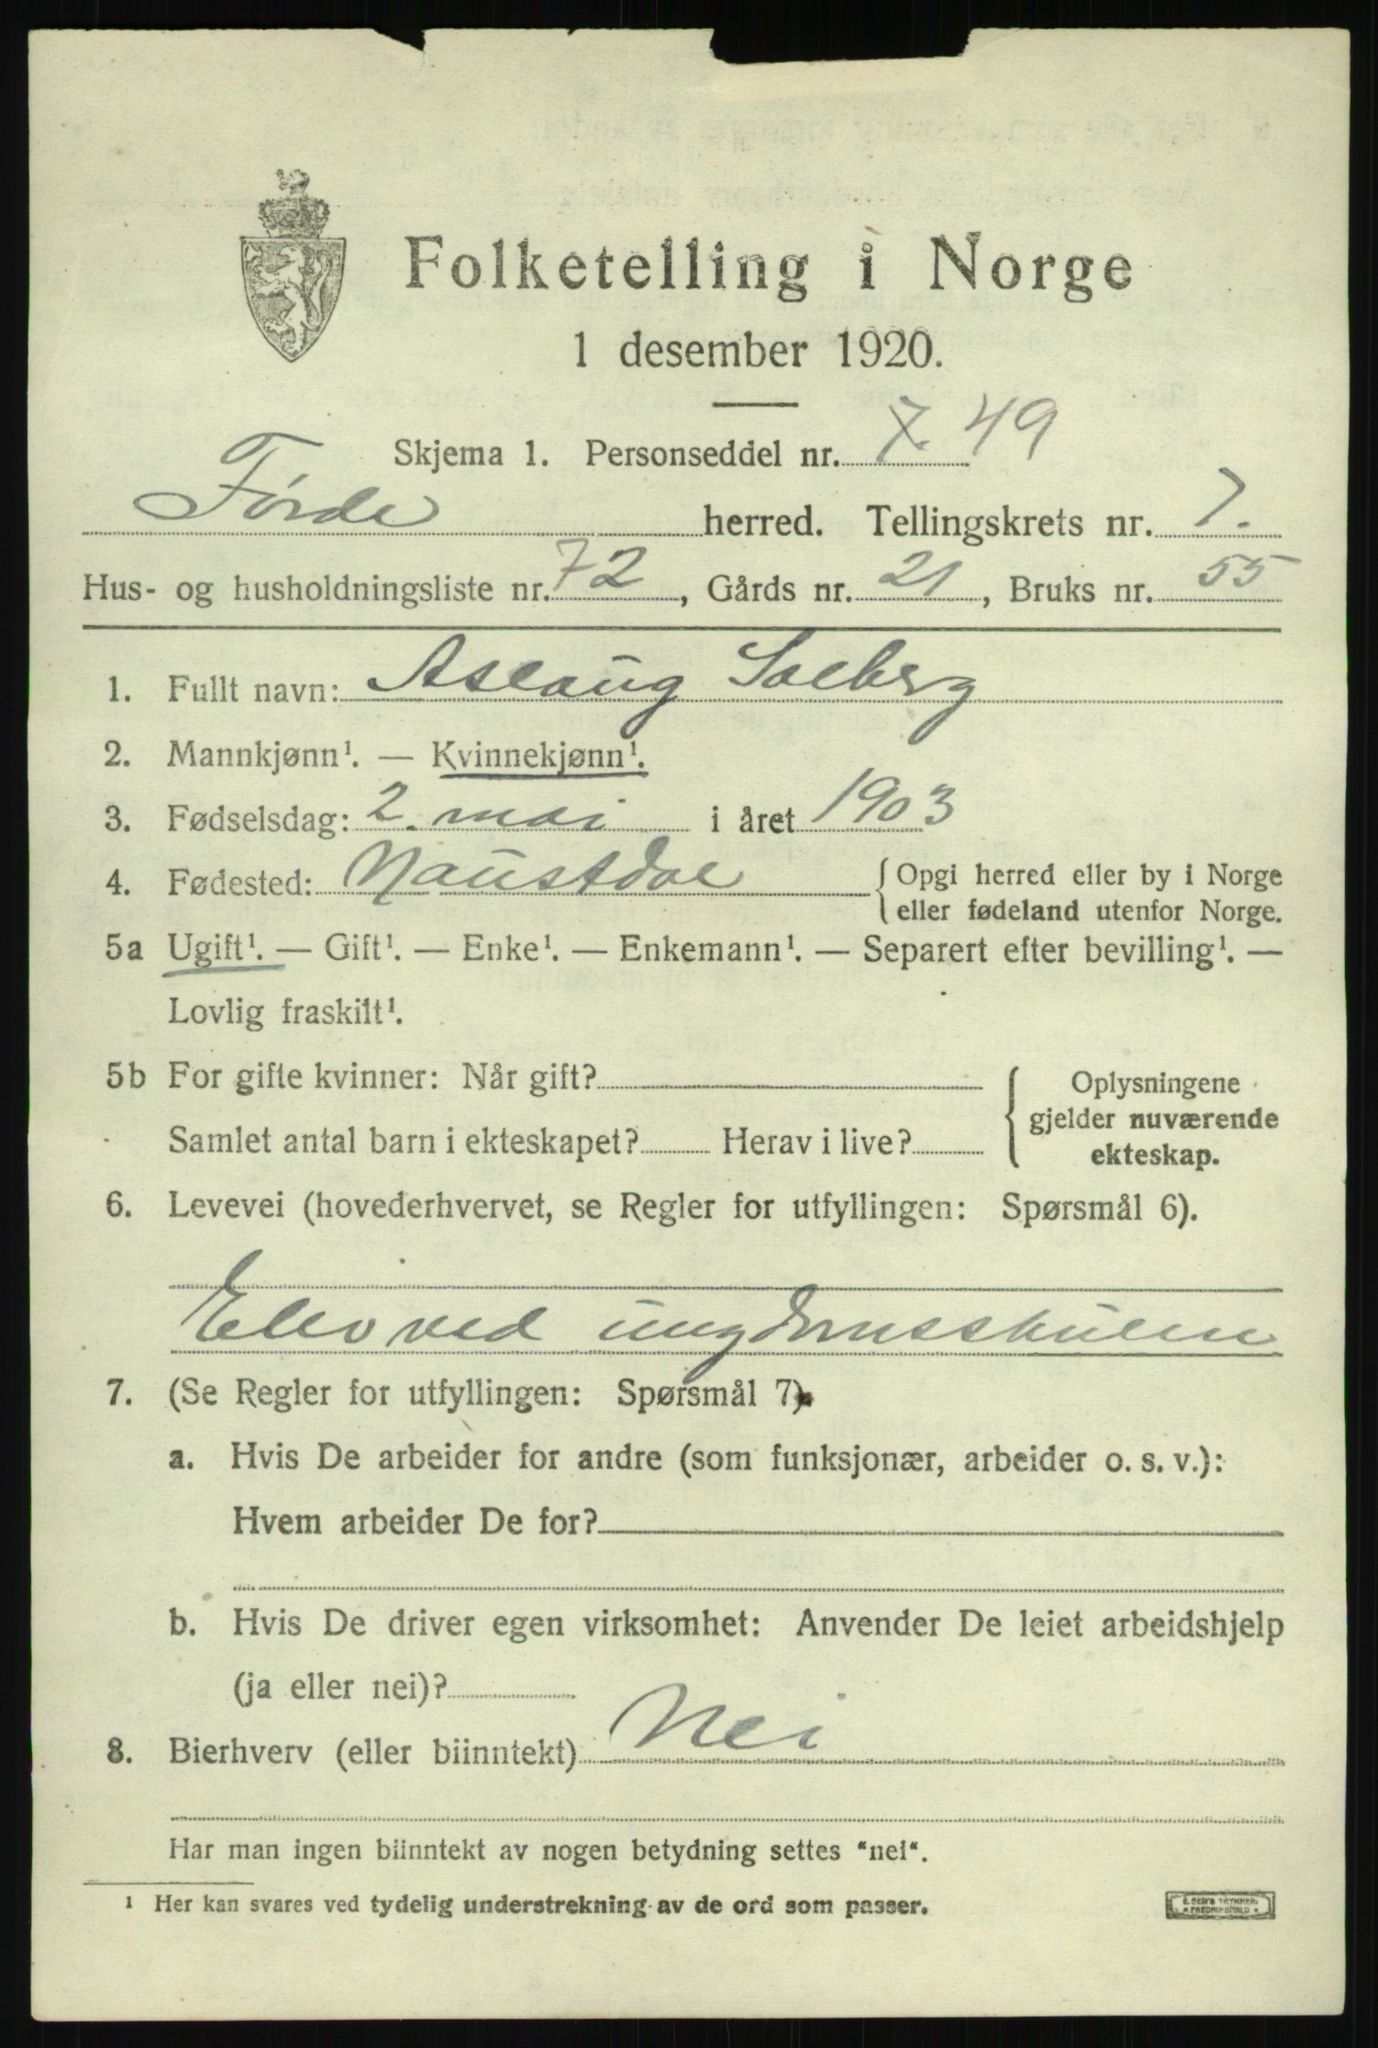 Folketelling i Norge
1 desember 1920.
Skjema 1. Personseddel nr. 7. 49
Førde herred. Tellingskrets nr. 7.
Hus- og husholdningsliste nr. 72, Gårds nr. 21, Bruks nr. 55
1. Fullt navn: Aslaug Solberg
2. Mannkjønn¹. — Kvinnekjønn¹.
3. Fødselsdag: 2. mai i året 1903
4. Fødested: Naustdal { Opgi herred eller by i Norge
eller fødeland utenfor Norge.
5a Ugift¹. — Gift¹. — Enke¹. — Enkemann¹. — Separert efter bevilling¹. —
Lovlig fraskilt¹.
5b For gifte kvinner: Når gift?
Samlet antal barn i ekteskapet? Herav i live?
{ Oplysningene
gjelder nuværende
ekteskap.
6. Levevei (hovederhvervet, se Regler for utfyllingen: Spørsmål 6).
Elev ved ungdomsskulen
7. (Se Regler for utfyllingen: Spørsmål 7).
a. Hvis De arbeider for andre (som funksjonær, arbeider o. s. v.):
Hvem arbeider De for?
b. Hvis De driver egen virksomhet: Anvender De leiet arbeidshjelp
(ja eller nei)?
8. Bierhverv (eller biinntekt) Nei
Har man ingen biinntekt av nogen betydning settes "nei".
¹ Her kan svares ved tydelig understrekning av de ord som passer.